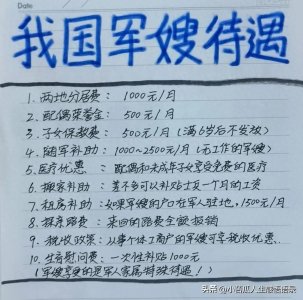 Date
我国军嫂待遇
1. 两地分居费: 1000元/月
2. 配偶荣誉金: 500元/月
3. 子女保教费: 500元/月(满6岁后不发放)
4. 随军补助: 1000~2500元/月(无工作的军嫂)
5. 医疗优惠: 配偶和未成年子女享受免费的医疗
6. 搬家补助: 差不多可以补贴丈夫一个月的工资
7. 租房补助: 如果军嫂的户口在军人驻地,1500元/月
8. 探亲路费: 来回的路费全额报销
9. 税收政策: 从事个体工商户的军嫂可享税收优惠
10. 生育慰问费: 一次性补贴1000元
(军嫂享受的是军人家属特殊待遇!)
头条 @小智瓜人生感语语录